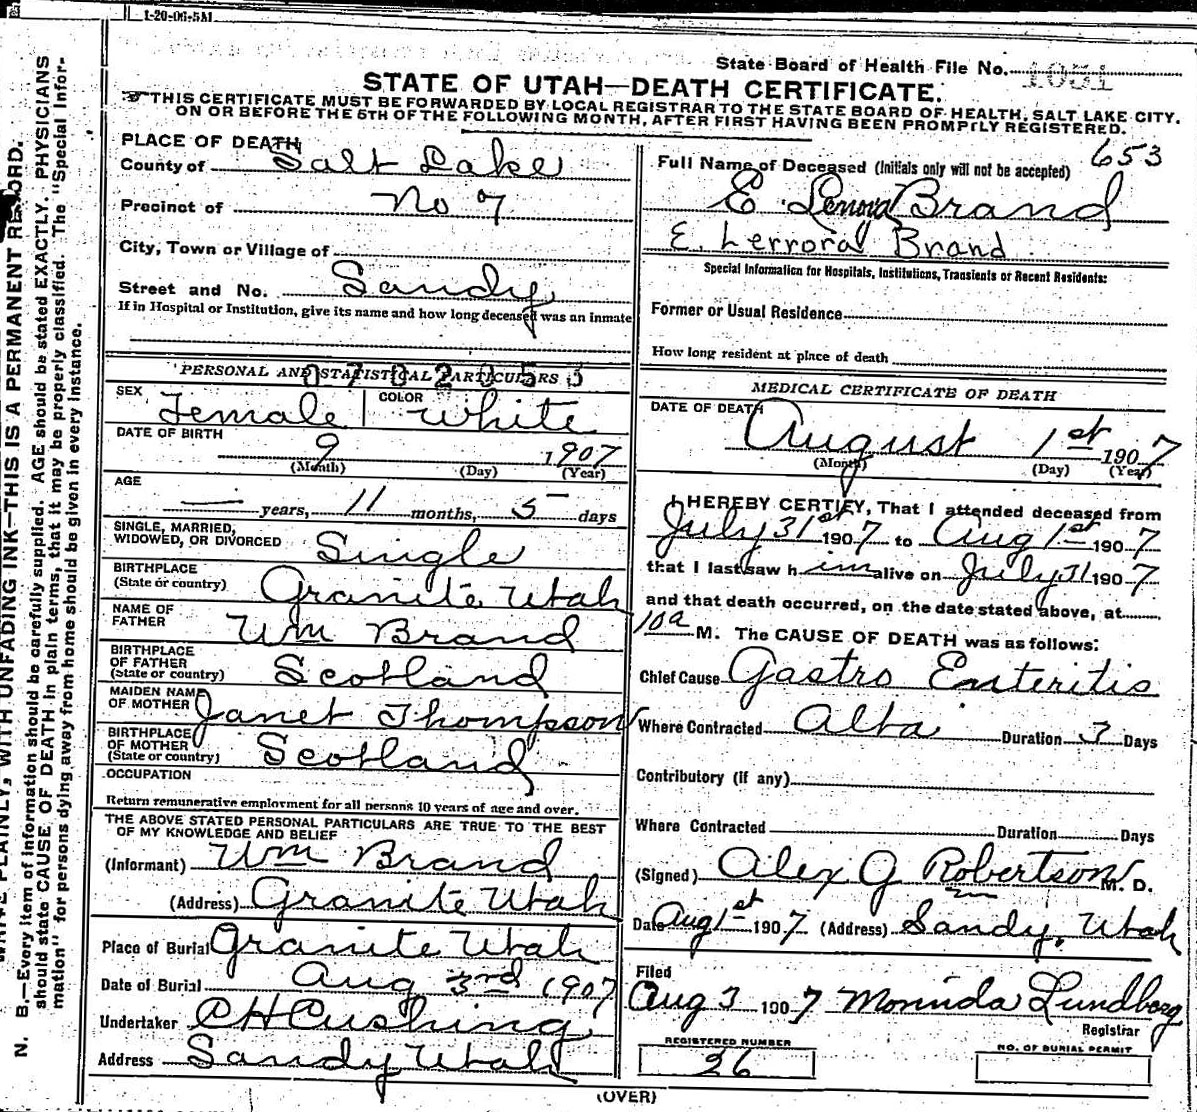 1-20-06-5M
State Board of Health File No. 1051
STATE OF UTAH—DEATH CERTIFICATE.
THIS CERTIFICATE MUST BE FORWARDED BY LOCAL REGISTRAR TO THE STATE BOARD OF HEALTH, SALT LAKE CITY.
ON OR BEFORE THE 5TH OF THE FOLLOWING MONTH, AFTER FIRST HAVING BEEN PROMPTLY REGISTERED.
PLACE OF DEATH
County of Salt Lake
Precinct of No 7
City, Town or Village of
Street and No. Sandy
If in Hospital or Institution, give its name and how long deceased was an inmate
PERSONAL AND STATISTICAL PARTICULARS
SEX Female COLOR White
DATE OF BIRTH 9 1907
(Month) (Day) (Year)
AGE — years, 11 months, 5 days
SINGLE, MARRIED,
WIDOWED, OR DIVORCED Single
BIRTHPLACE
(State or country) Granite Utah
NAME OF
FATHER Wm Brand
BIRTHPLACE
OF FATHER
(State or country) Scotland
MAIDEN NAME
OF MOTHER Janet Thompson
BIRTHPLACE
OF MOTHER
(State or country) Scotland
OCCUPATION
Return remunerative employment for all persons 10 years of age and over.
THE ABOVE STATED PERSONAL PARTICULARS ARE TRUE TO THE BEST
OF MY KNOWLEDGE AND BELIEF
(Informant) Wm Brand
(Address) Granite Utah
Place of Burial Granite Utah
Date of Burial Aug 3rd 1907
Undertaker C H Cushing
Address Sandy Utah
653
Full Name of Deceased (Initials only will not be accepted)
E Lenora Brand
E. Lerrora Brand
Special Information for Hospitals, Institutions, Transients or Recent Residents:
Former or Usual Residence
How long resident at place of death
MEDICAL CERTIFICATE OF DEATH
DATE OF DEATH
August 1st 1907
(Month) (Day) (Year)
I HEREBY CERTIFY, That I attended deceased from
July 31st 1907 to Aug 1st 1907
that I last saw h im alive on July 31 1907
and that death occurred, on the date stated above, at
10a M. The CAUSE OF DEATH was as follows:
Chief Cause Gastro Enteritis
Where Contracted Alta Duration 3 Days
Contributory (if any)
Where Contracted Duration Days
(Signed) Alex G Robertson M. D.
Date Aug 1st 1907 (Address) Sandy, Utah
Filed
Aug 3 1907 Lundberg
Registrar
REGISTERED NUMBER
36
NO. OF BURIAL PERMIT
(OVER)
WRITE PLAINLY, WITH UNFADING INK—THIS IS A PERMANENT RECORD.
N. B.—Every item of information should be carefully supplied. AGE should be stated EXACTLY. PHYSICIANS
should state CAUSE OF DEATH in plain terms, that it may be properly classified. The "Special Infor-
mation" for persons dying away from home should be given in every instance.